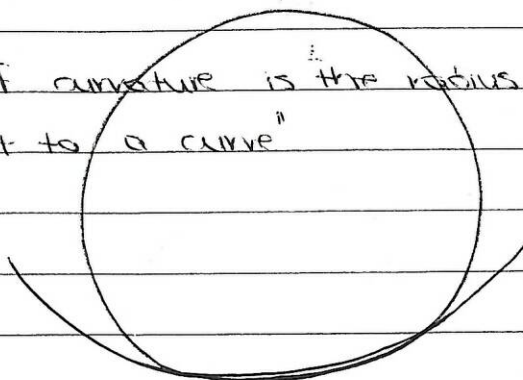 f curvature is the radius
t to a curve"